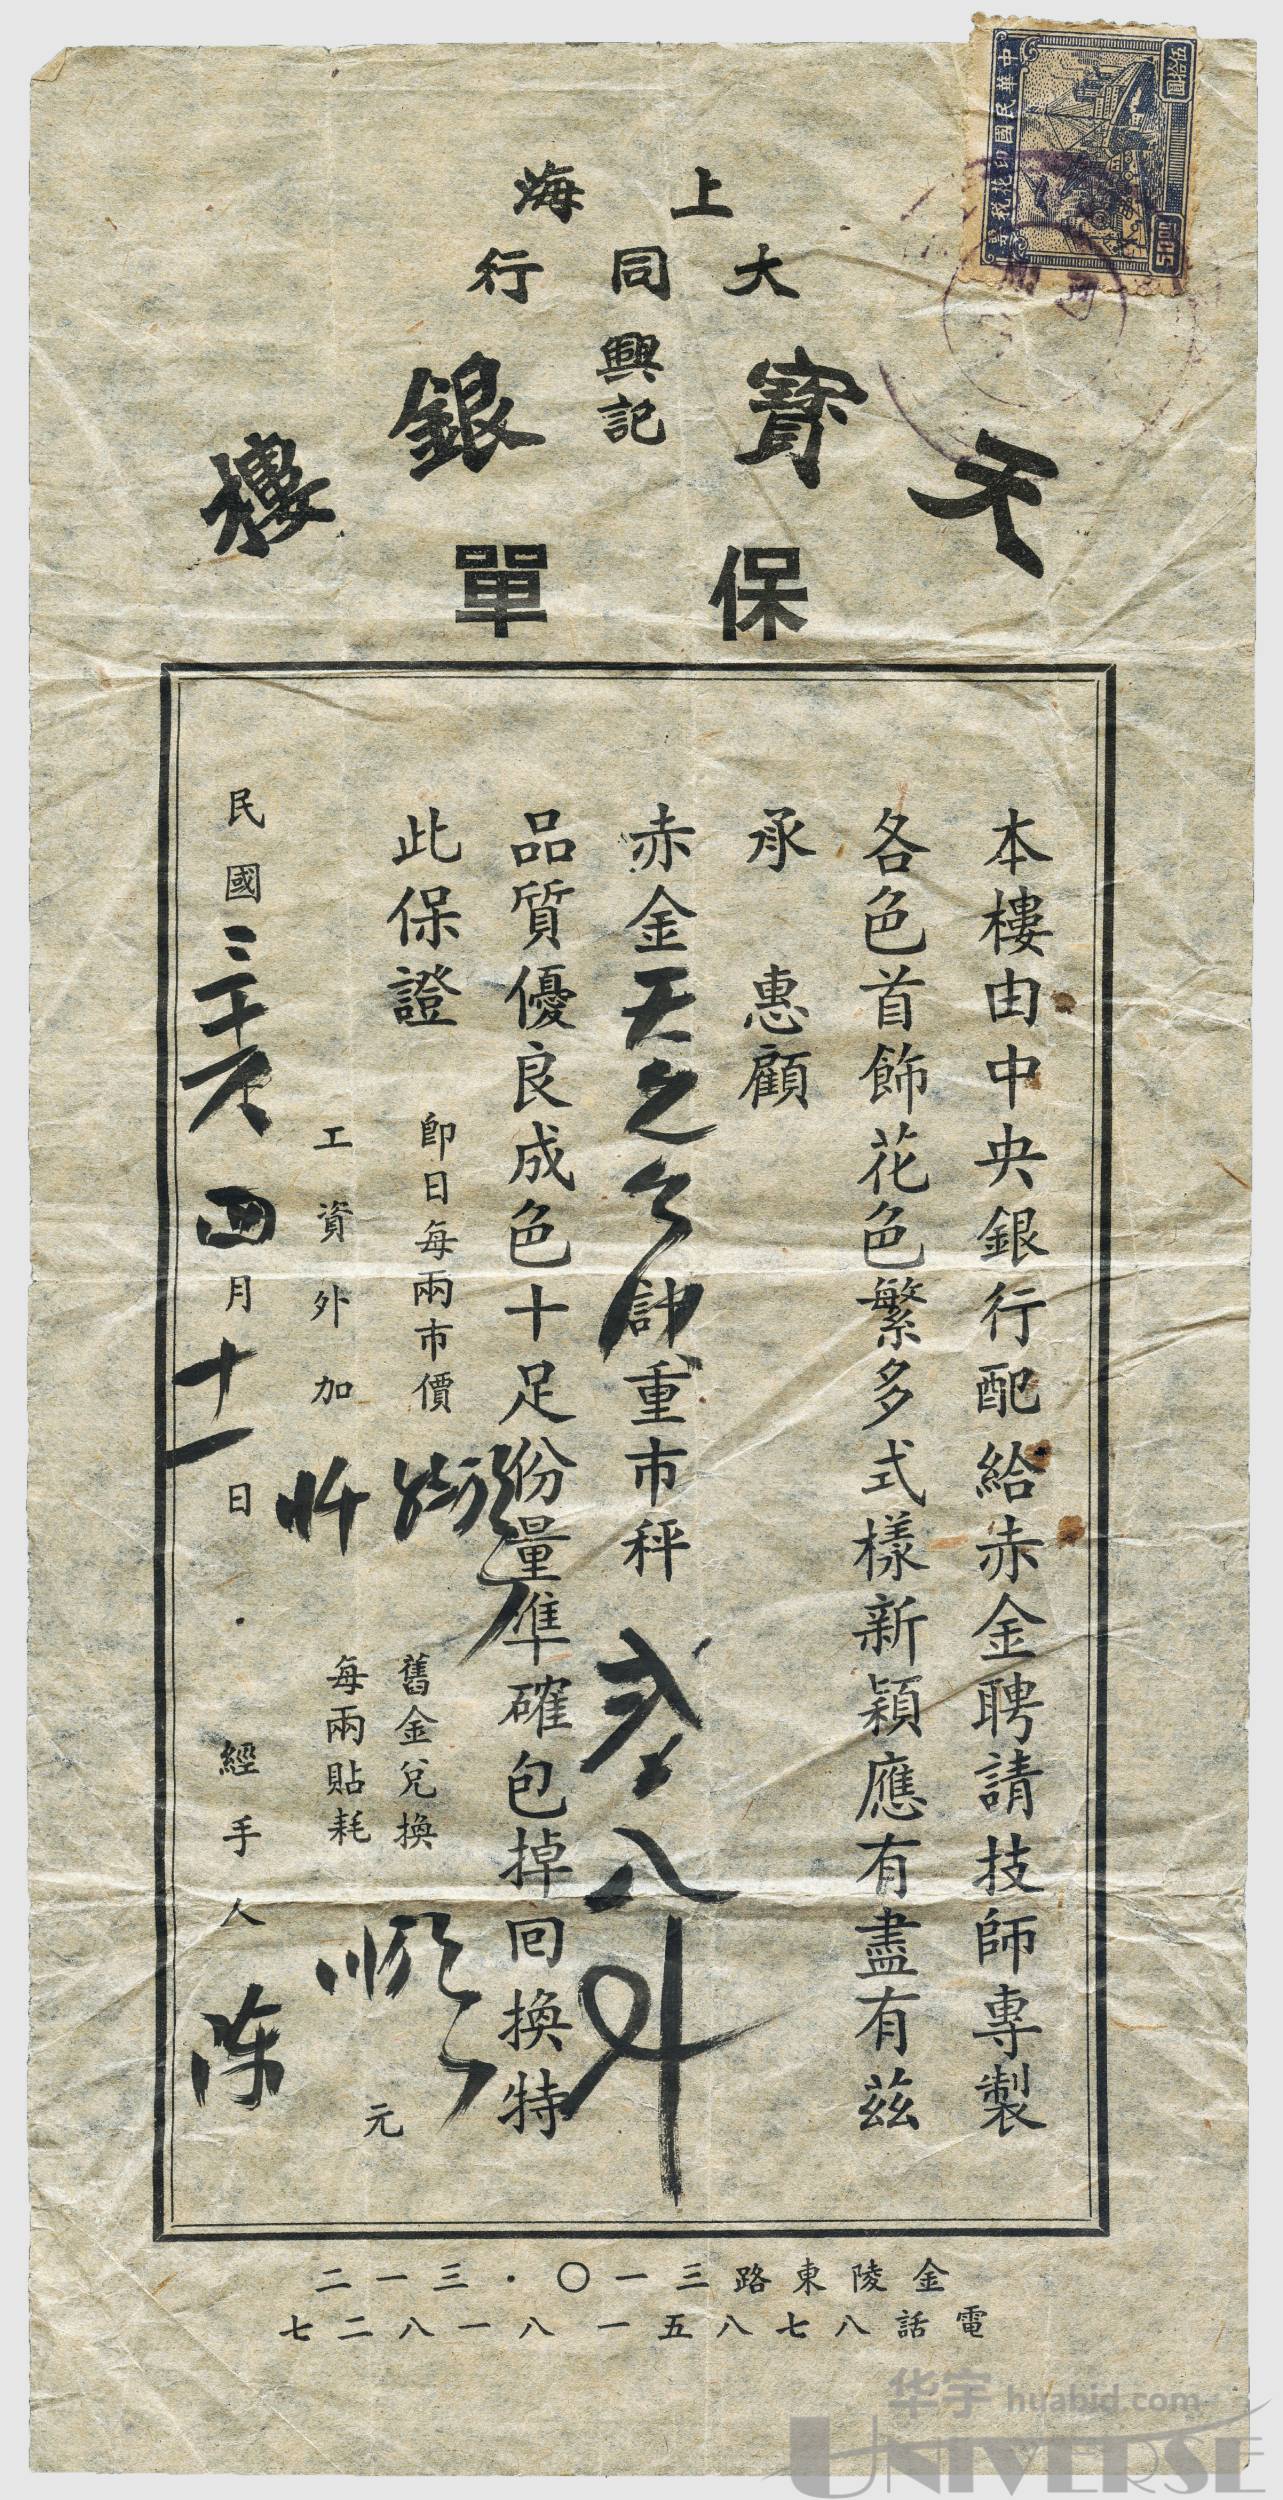 上海
大同行
天寶興記銀樓
保單
本樓由中央銀行配給赤金聘請技師專製
各色首飾花色繁多式樣新穎應有盡有茲
承 惠顧
赤金天 計重市秤 弍 八
品質優良成色十足份量準確包掉回換特
此保證
即日每兩市價
工資外加
舊金兌換
每兩貼耗
元
民國三十六 四月十一日 · 經手人 陈
金陵東路三一〇·三一二
電話八七八五一 八一八二七
中華民國印花稅票
伍拾圓
50圓
华宇 huabid.com
UNIVERSE